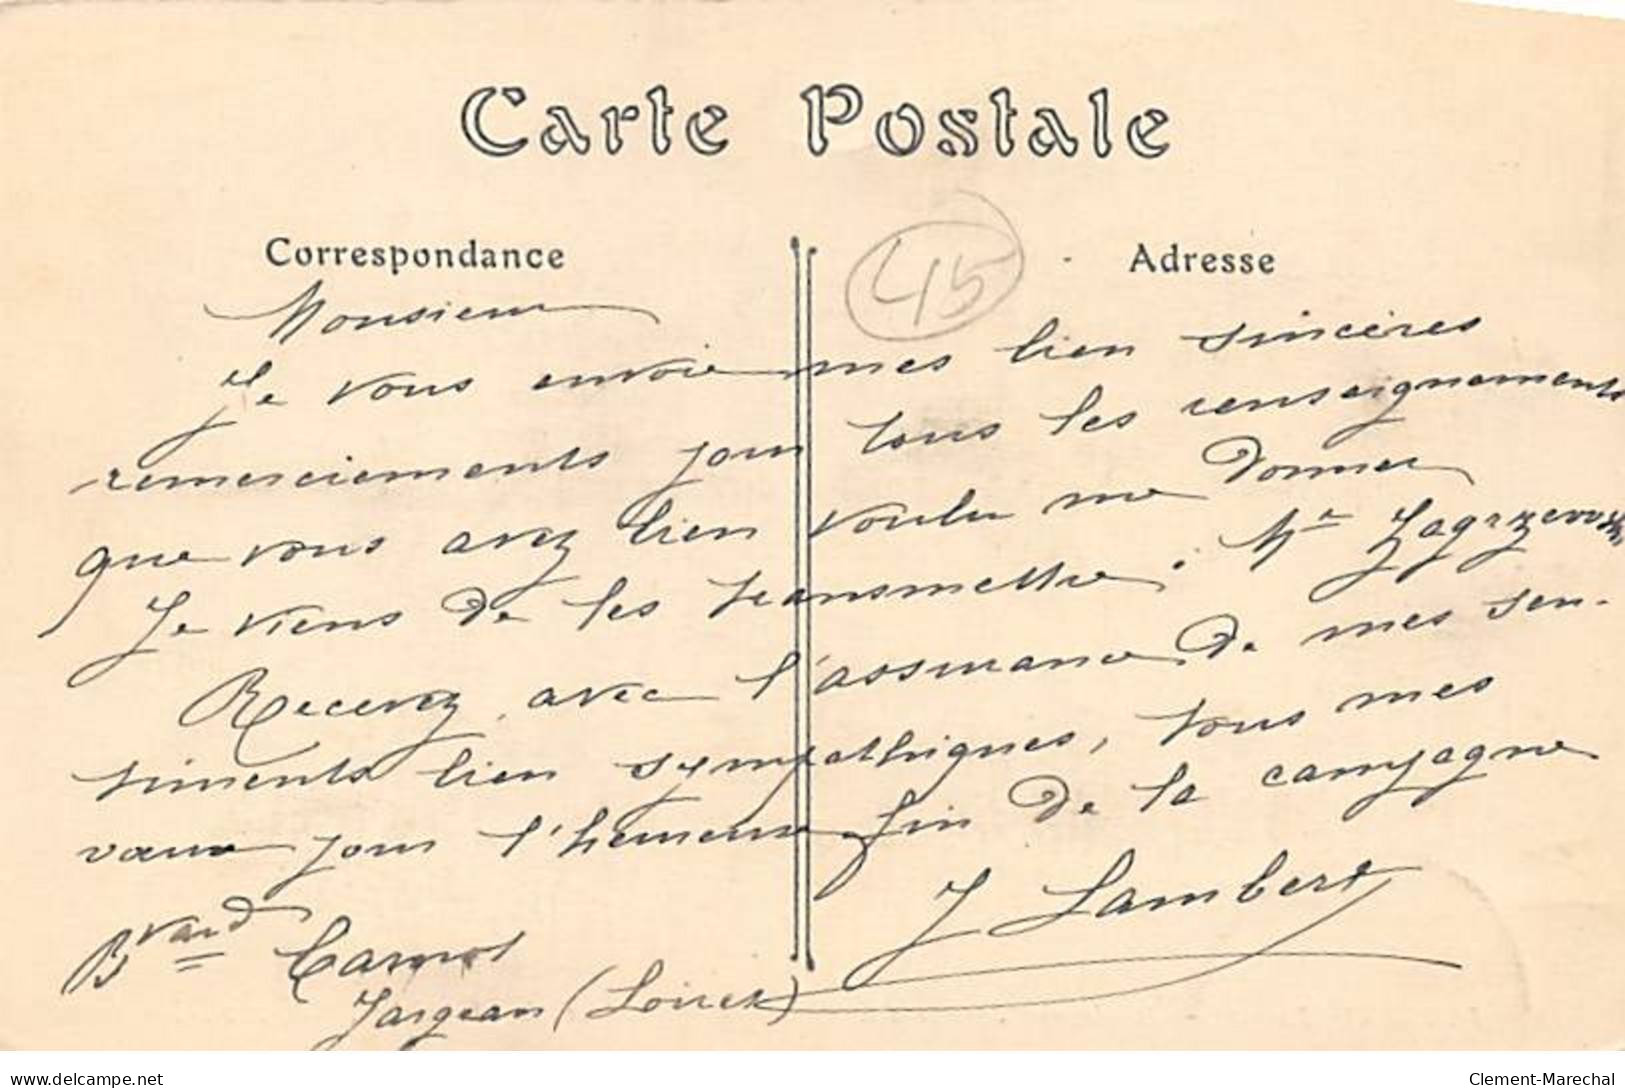 Carte Postale
Correspondance
Adresse
45
Monsieur
Je vous envoie mes bien sincères
remerciements pour tous les renseignements
que vous avez bien voulu me donner
Je viens de les transmettre à Mr
Recevez, avec l'assurance de mes sen-
timents bien sympathiques, tous mes
vœux pour l'heureuse fin de la campagne
J Lambert
Bvard Carnot
Jargeau (Loiret)
delcampe.net
Clement-Marechal